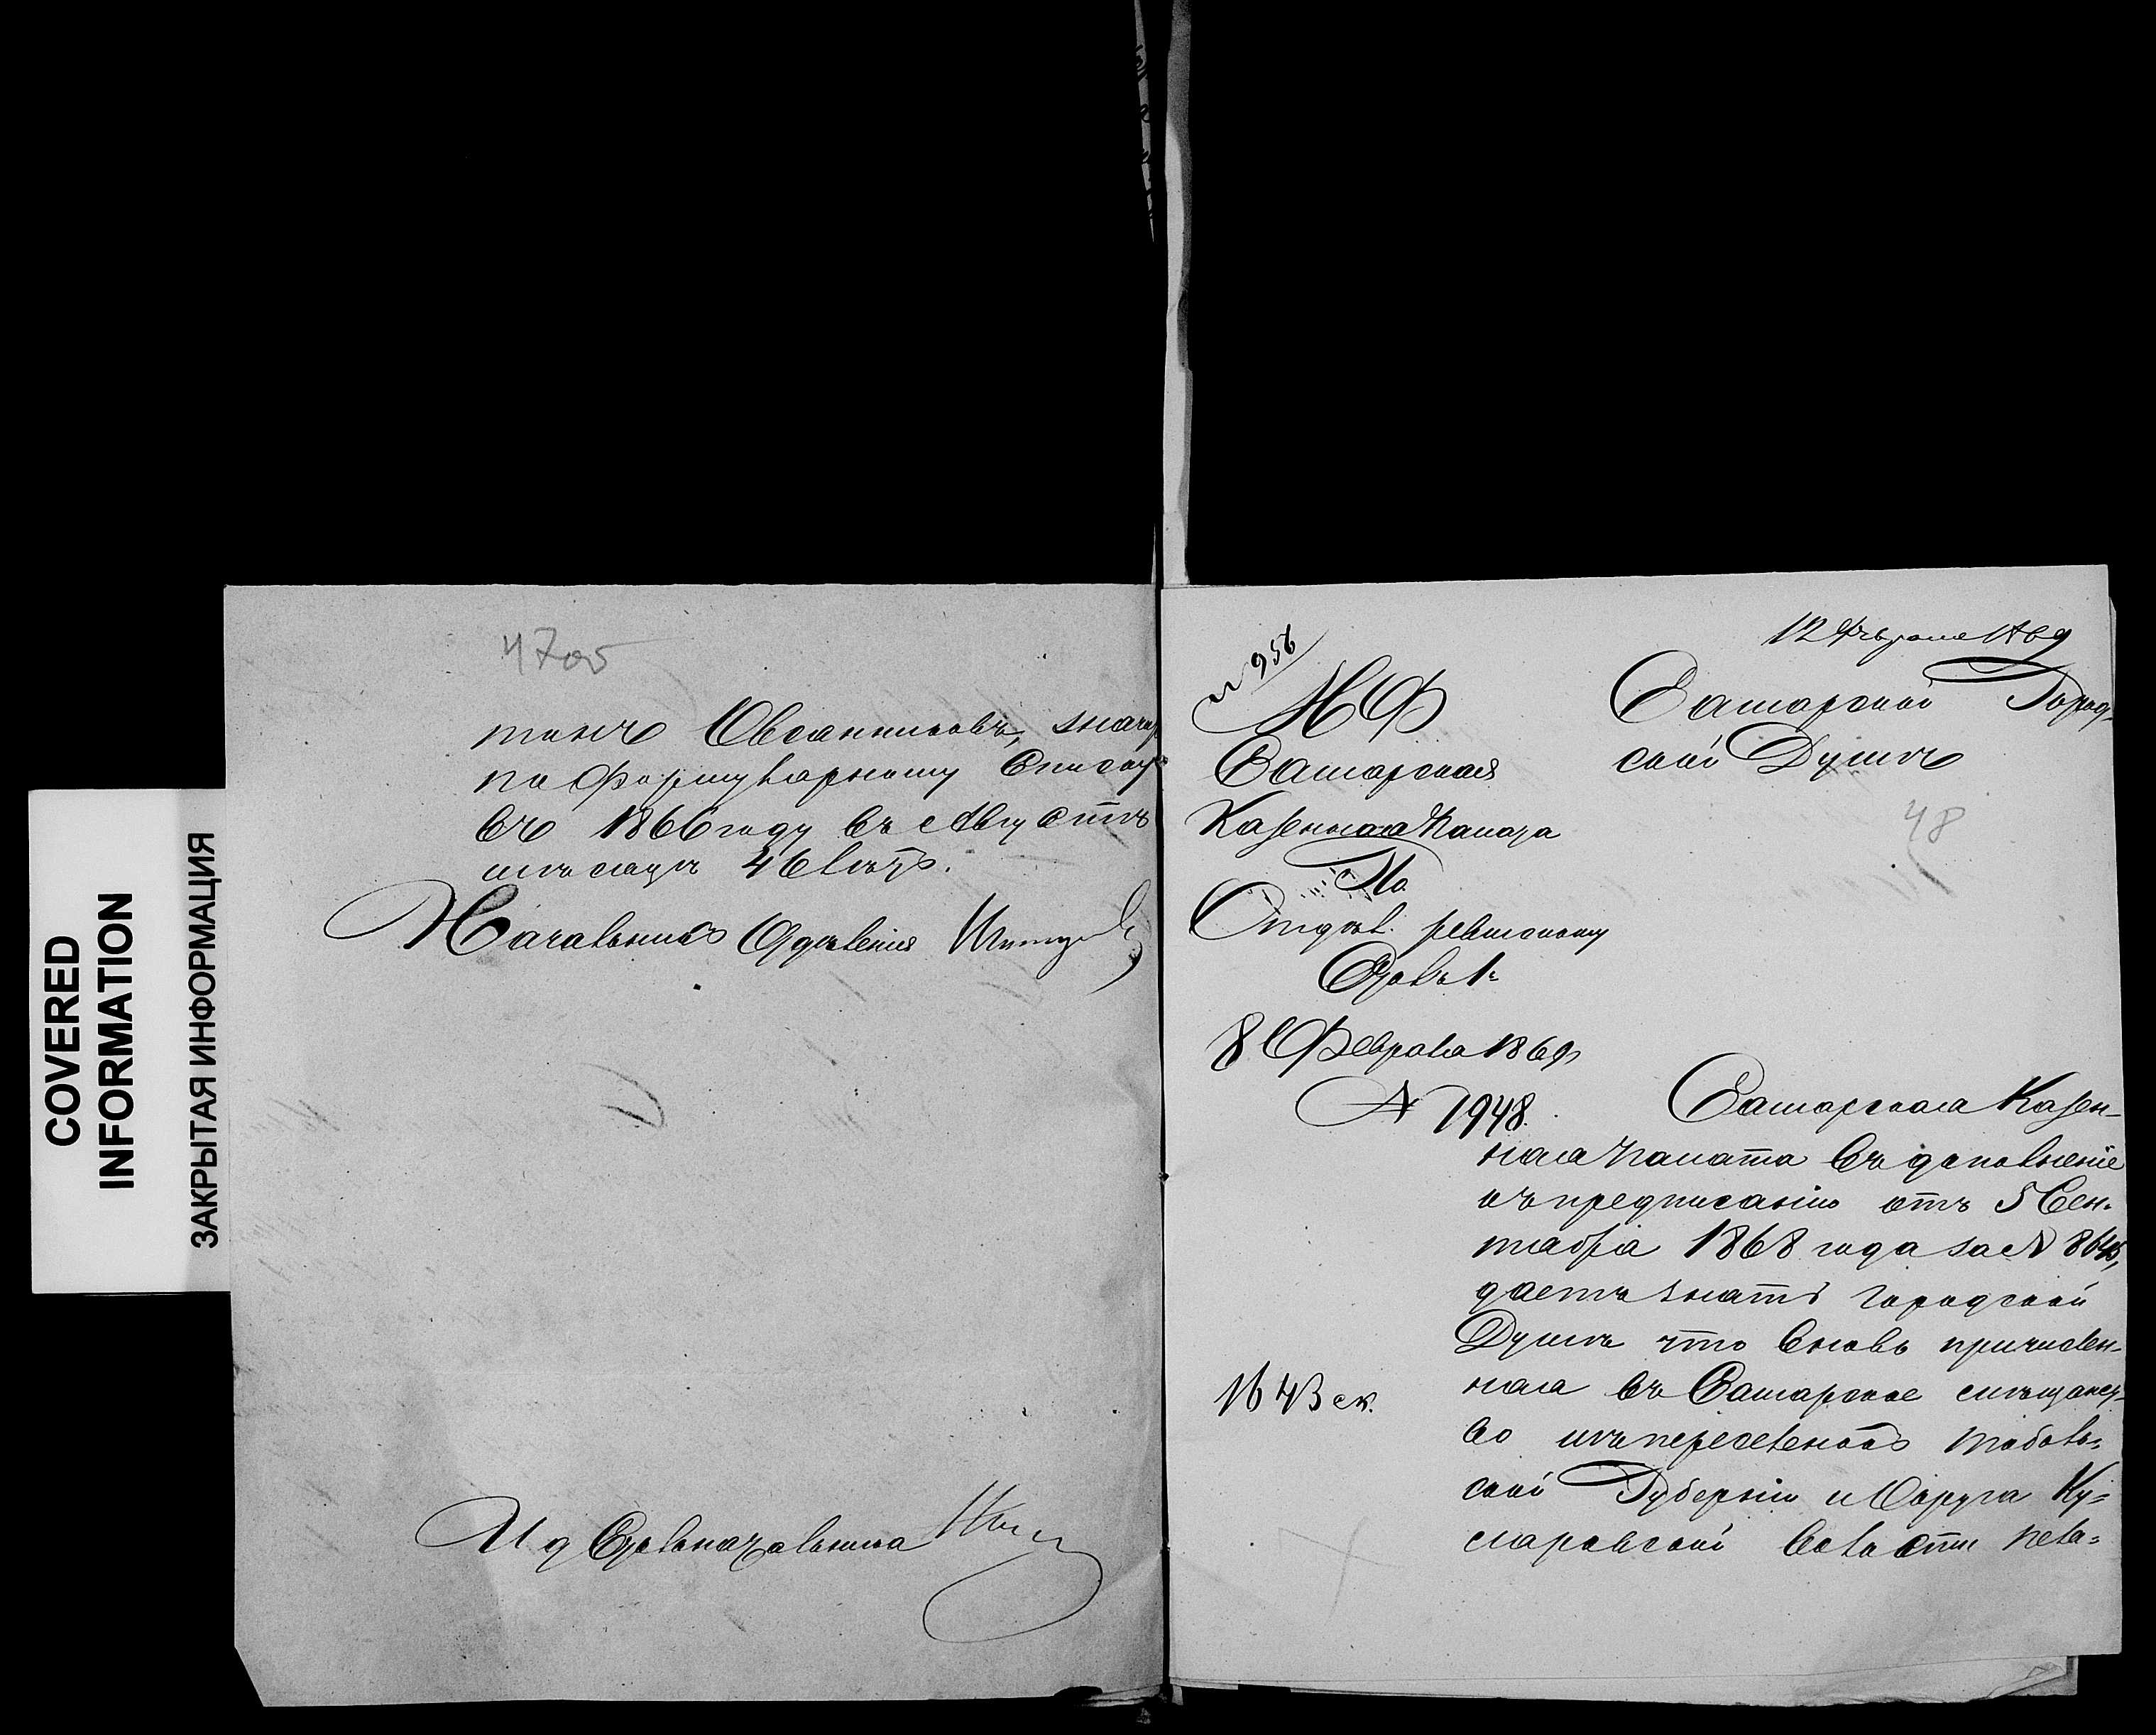 COVERED
INFORMATION
ЗАКРЫТАЯ ИНФОРМАЦИЯ
47об
тинъ Овсянниковъ, значит
по Формулярному Списку
въ 1866 году въ Августѣ
мѣсяцѣ 46 лѣтъ.
Начальникъ Отдѣленія
И д Столоначальника
№ 956
12 Февраля 1869
М Ф
Самарская
Казенная Палата
По
Отдѣл. ревизскому
Столъ 1
8 Февраля 1869
№ 1948.
Самарской Город-
ской Думѣ
48
Самарская Казен-
ная Палата въ дополненіе
къ предписанію отъ 5 Сен-
тября 1868 года за №
даетъ знать городской
Думѣ что вновь причислен-
ная въ Самарское мѣщанст-
во изъ переселенокъ Тоболь-
ской Губерніи и Округа Ку-
гларовской волости Пела-
1643 ск.